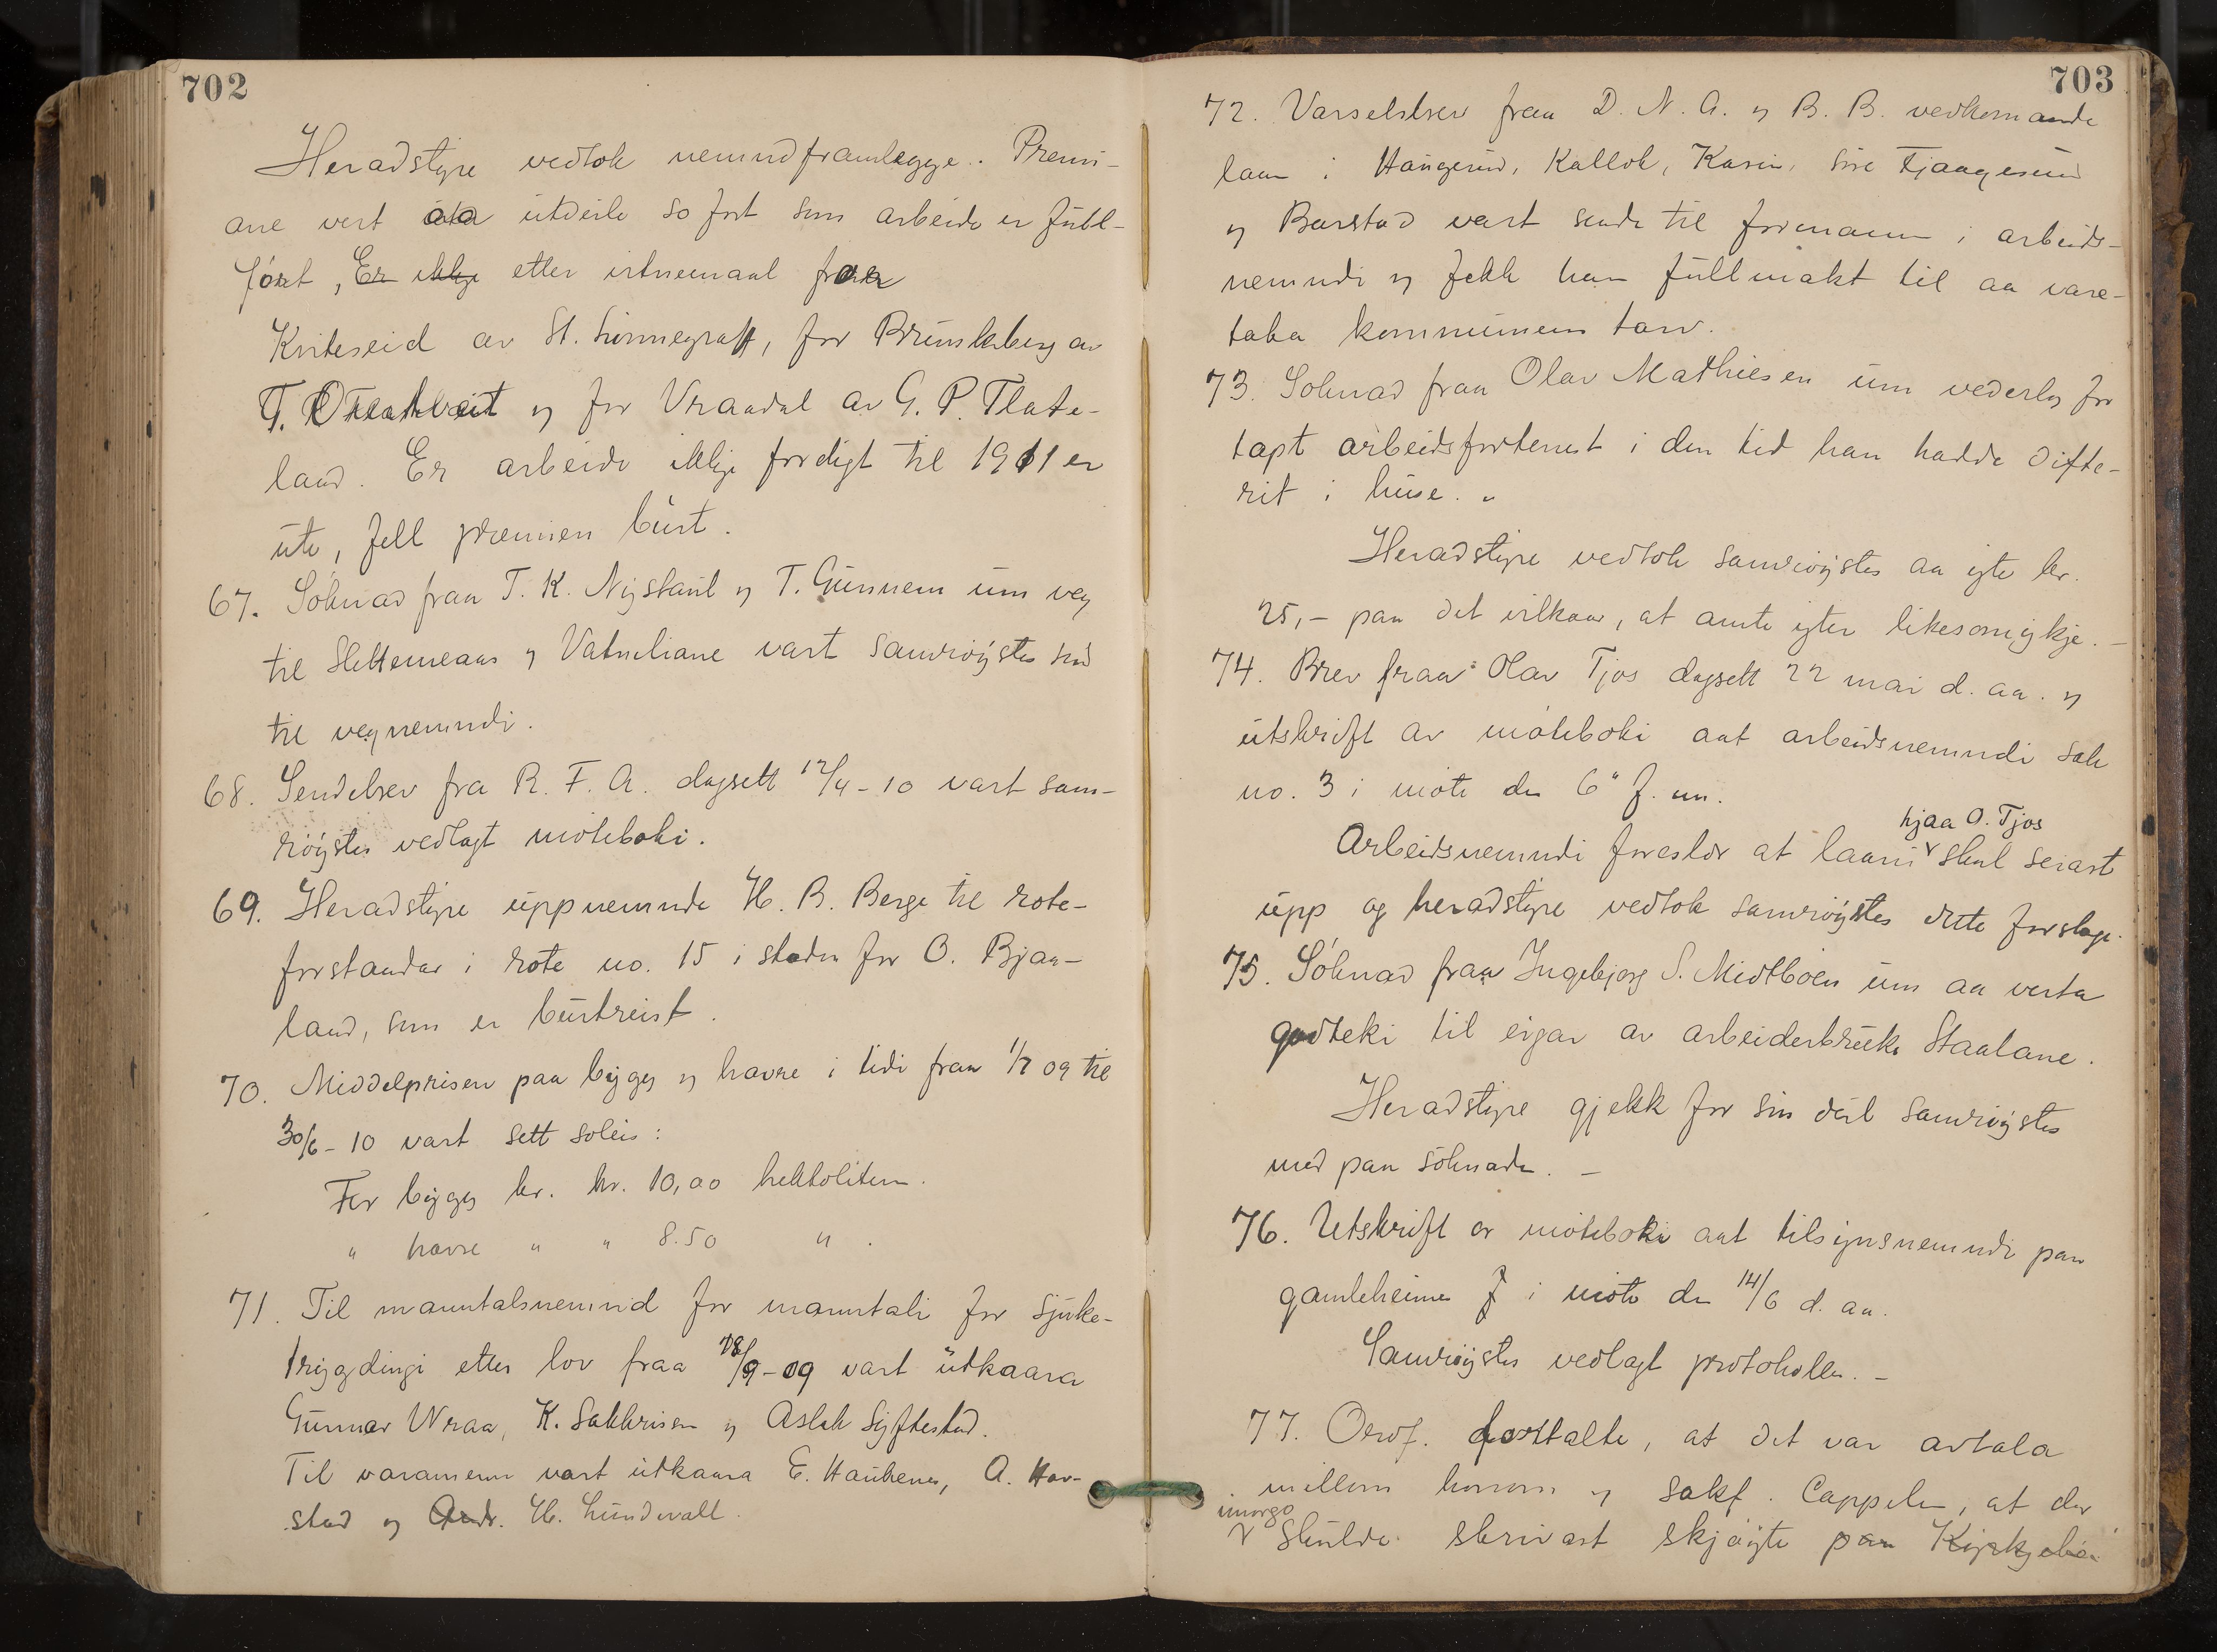 702
Heradstyre vedtok nemndframlegge. Premi-
ane vert utdeile so fort som arbeide er full-
ført, Er ikkje etter istnemaal fraa
Kviteseid av St. Sinnegraff, for Brunkeberg av
T. og for Vraadal av G. P. Flate-
land. Er arbeide ikkje fordigt til 1911 er
ute, fell premien burt.
67. Søknad fraa T. K. Nystaul og T. Gunnem um veg
til Slettemeaas og Vatnliane vart samrøystes send
til vegnemndi.
68. Sendebrev fra R. F. A. dagsett 12/4-10 vart sam-
røystes vedlagt møteboki.
69. Heradstyre uppnemnde H. B. Berge til rote-
forstandar i rote no. 15 i staden for O. Bjaa-
land, som er burtreist.
70. Middelprisen paa bygg og havre i tidi fraa 1/7 09 til
30/6-10 vart sett soleis:
For bygg kr. kr. 10,00 hektoliteren.
" havre " " 8.50 " .
71. Til manntalsnemnd for manntali for sjuke-
trygdingi etter lov fraa 18/9-09 vart utkaara
Gunnar Wraa, K. Sakkrisen og Aslak Syftestad.
Til varamenn vart utkaara E. Haukenes, A. Hav-
stad og Andr. H. Lundevall.
703
72. Varselsbrev fraa D. N. A. og B. B. vedkomande
laan i Haugerud, Kallok, Kasin, Sire Fjaagesund
og Barstad vart sende til formann i arbeids-
nemndi og fekk han fullmakt til aa vare-
taka kommunens tarv.
73. Søknad fraa Olav Mathiesen um vederlag for
tapt arbeidsfortenest i den tid han hadde difte-
rit i huse.
Heradstyre vedtok samrøystes aa yte kr.
25,- paa det vilkaar, at amte yter likesomykje. -
74. Brev fraa Olav Tjos dagsett 22 mai d. aa. og
utskrift av møteboki aat arbeidsnemndi sak
no. 3 i møte den 6" f. m.
hjaa O. Tjos
Arbeidsnemndi foreslær at laani skal seiast
upp og heradstyre vedtok samrøystes dette forslage.
75. Søknad fraa Ingebjørg S. Midtbøen um aa verta
godteki til eigar av arbeiderbruke Staalane.
Heradstyre gjekk for sin deil samrøystes
med paa søknaden. -
76. Utskrift av møteboki aat tilsynsnemndi paa
gamleheimen i møte den 14/6 d. aa.
Samrøystes vedlagt protokollen. -
77. Ordf. fortalte, at det var avtala
millom honom og sakf. Cappelen, at der
imorgo
skulde skrivast skjøyte paa Kyrkjebø